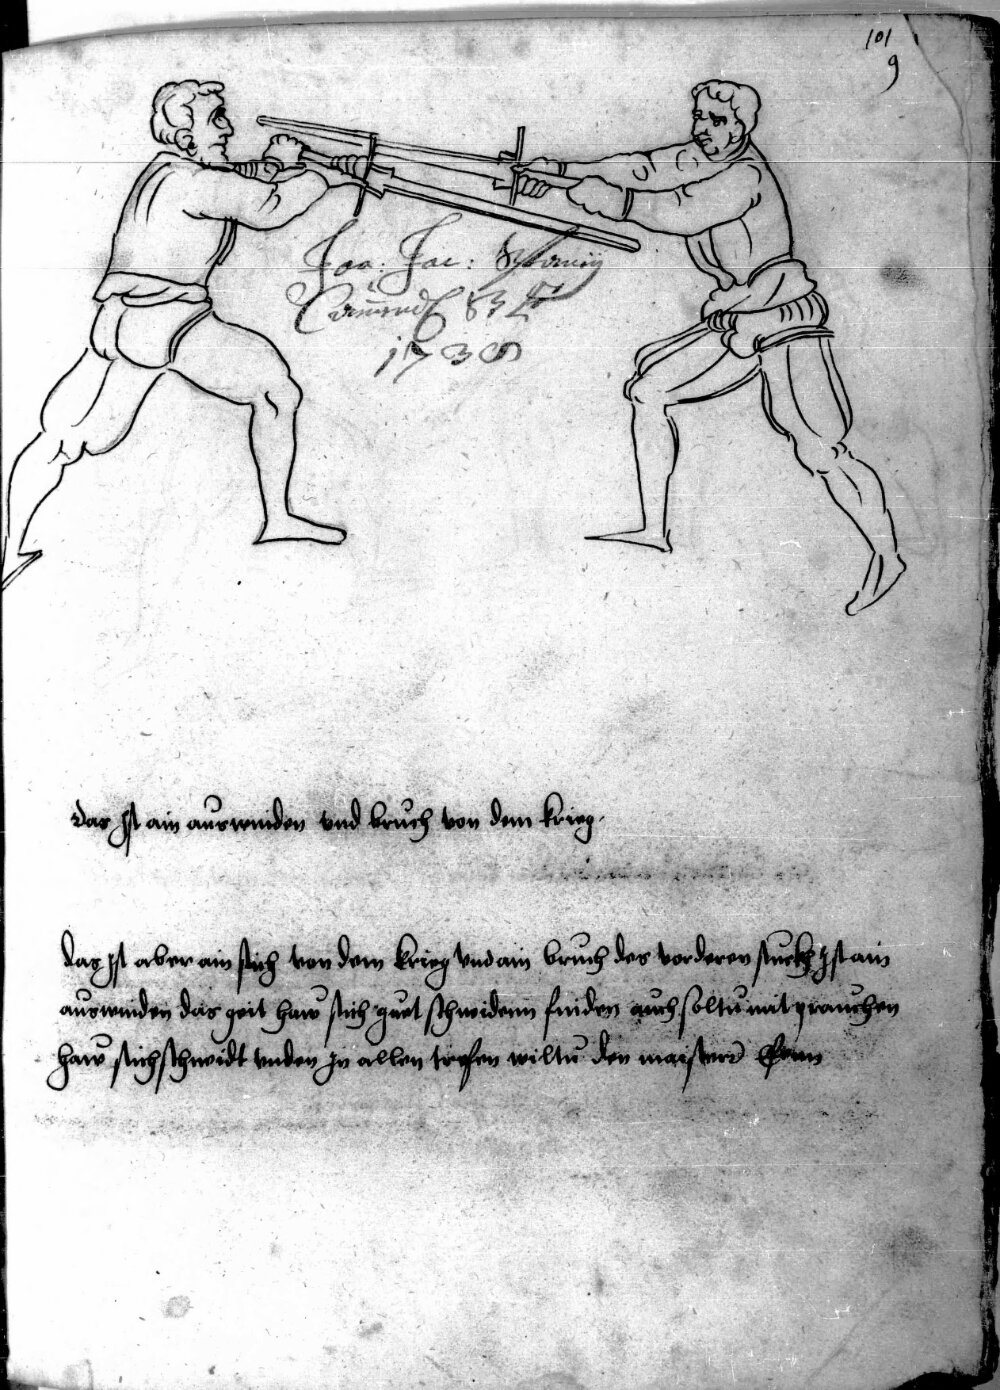 101
9
Joa: Jac:
1736
das Ist ain auswinden vnd bruch von dem krieg.
das Ist aber ain stich von dem krieg vnd ain bruch des vorderen stuckh Ist ain
auswinden das geit haw stich guet schneidenn finden auch soltu mit prauchen
haw stich schneidt vnden In allen trefen wiltu den maisterē